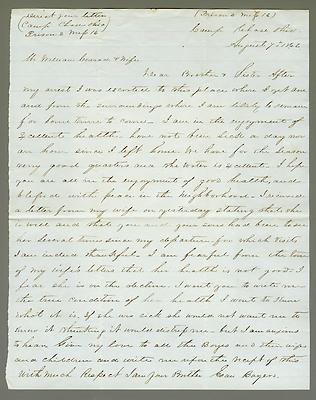 Direct your letter
(Camp Chase Ohio)
Prison 2 Mess 16
(Prison 2 Mess 16)
Camp Chase Ohio
August 7th 1862
Mr William & Wife
Dear Brother & Sister After
my arrest I was escorted to this place where I yet am
and from the surroundings where I am likely to remain
for some time to come I am in the enjoyment of
Excellent health have not been sick a day nor
an hour since I left home We have for the season
very good quarters and the water is Excellent. I hope
you are all in the enjoyment of good health and
blessed with peace in the Neighborhood. I received
a letter from my wife on yesterday stating that she
is well and that you and your sons had been to see
her several times since my departure for which visits
I am indeed thankful. I am fearful from the tone
of my wife's letters that her health is not good. I
fear she is on the decline. I want you to write me
the true condition of her health I want to know
what it is. If she was sick she would not want me to
know it thinking it would distress me but I am anxious
to hear Give my love to all the Boyes and their wives
and children and write me upon the receipt of this
With much Respect I am your Brother